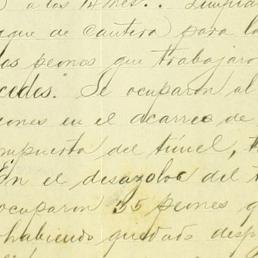 a los 14 mes.. Limpia
que de cantera para la
os peones que trabajaro
cedes." Se ocuparon al
eones en el acarreo de
mpuerta del túnel, t
En el desazolve del t
ocuparon 35 peones q
habiendo quedado desp